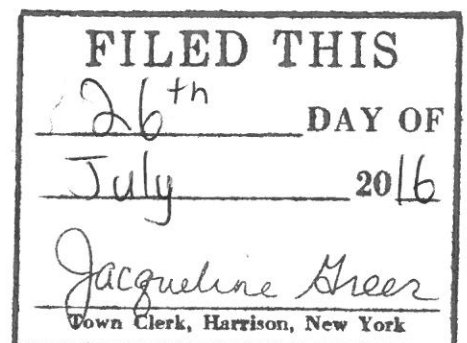 FILED THIS
26th DAY OF
July 2016
Jacqueline Greer
Town Clerk, Harrison, New York